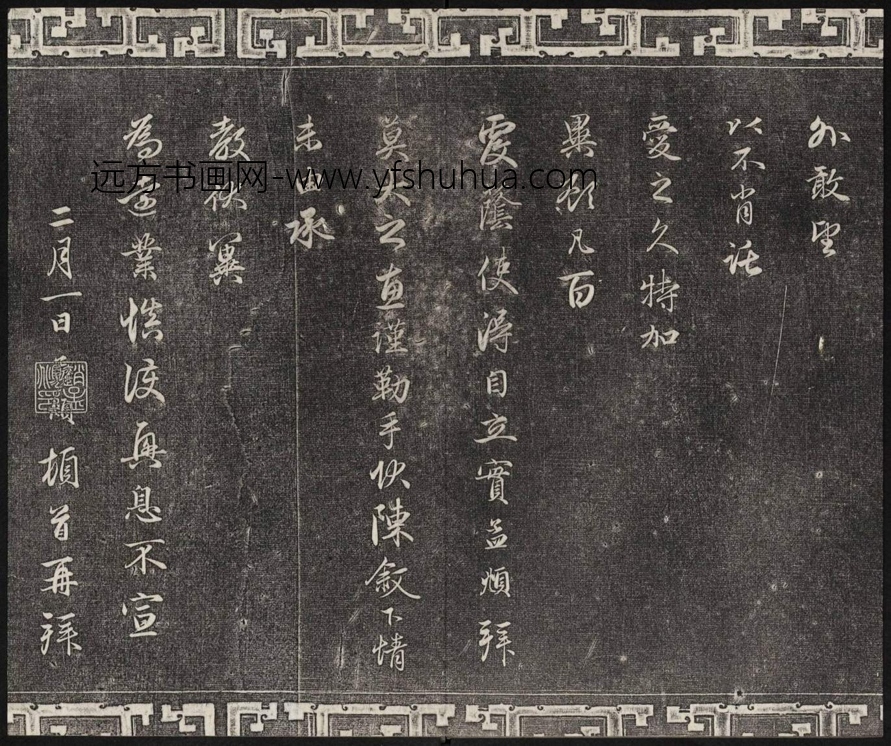 外敢望
以不肖託
愛之久特加
異顧凡百
覆蔭使得自立實益頻拜
莫大之惠謹勒手伏陳敘下情
未 承
教伏冀
為道業慎護興息不宣
二月一日
頓首再拜
远方书画网-www.yfshuhua.com